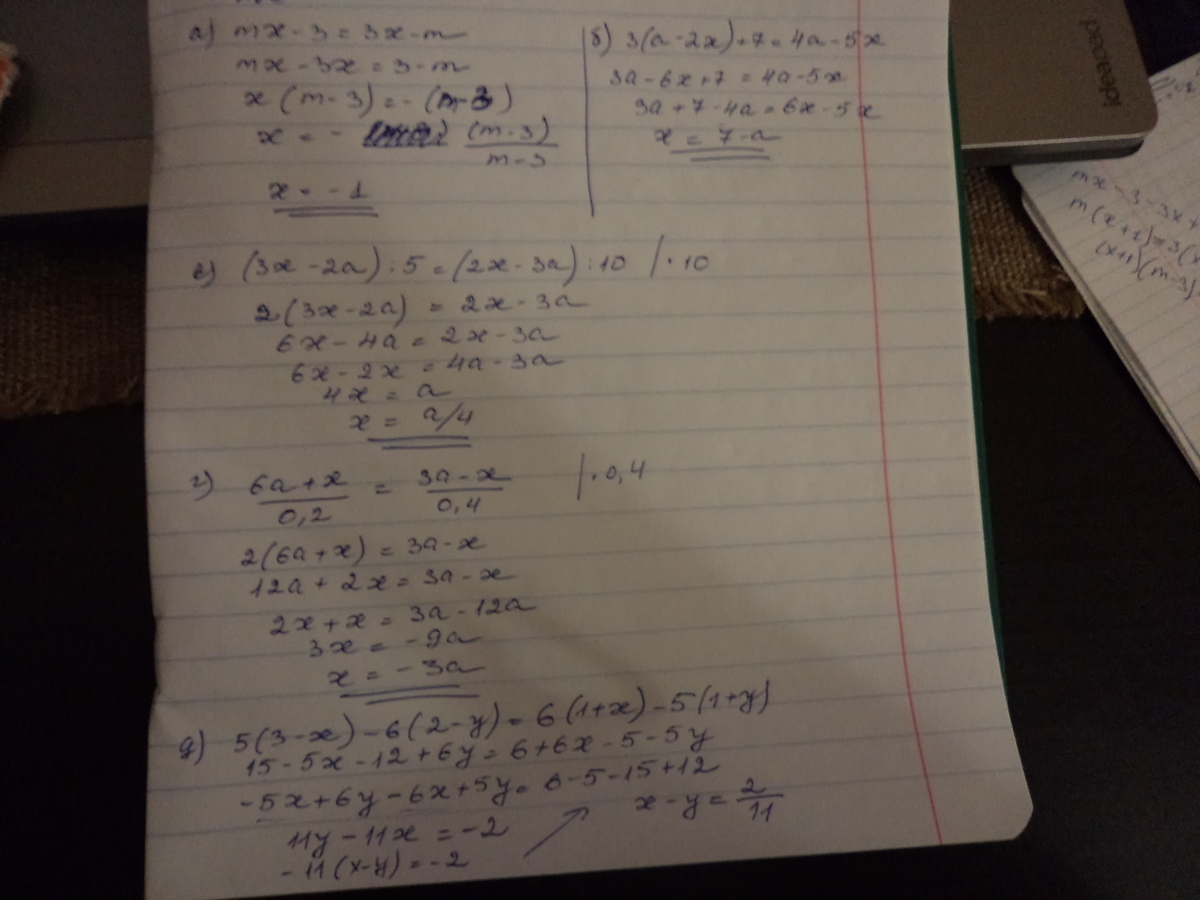 а) mx - 3 = 3x - m
mx - 3x = 3 - m
x (m - 3) = - (m - 3)
x = - (m - 3) / m - 3
x = - 1
б) 3(a - 2x) + 7 = 4a - 5x
3a - 6x + 7 = 4a - 5x
3a + 7 - 4a = 6x - 5x
x = 7 - a
в) (3x - 2a) : 5 = (2x - 3a) : 10 / · 10
2 (3x - 2a) = 2x - 3a
6x - 4a = 2x - 3a
6x - 2x = 4a - 3a
4x = a
x = a/4
г) 6a + x / 0,2 = 3a - x / 0,4 / · 0,4
2(6a + x) = 3a - x
12a + 2x = 3a - x
2x + x = 3a - 12a
3x = - 9a
x = - 3a
д) 5(3 - x) - 6(2 - y) = 6(1 + x) - 5(1 + y)
15 - 5x - 12 + 6y = 6 + 6x - 5 - 5y
-5x + 6y - 6x + 5y = 6 - 5 - 15 + 12
11y - 11x = - 2
- 11(x - y) = - 2
x - y = 2/11
ideapad
mx - 3 - 3x +
m (x + 1) = 3(x
(x+1)(m-3)